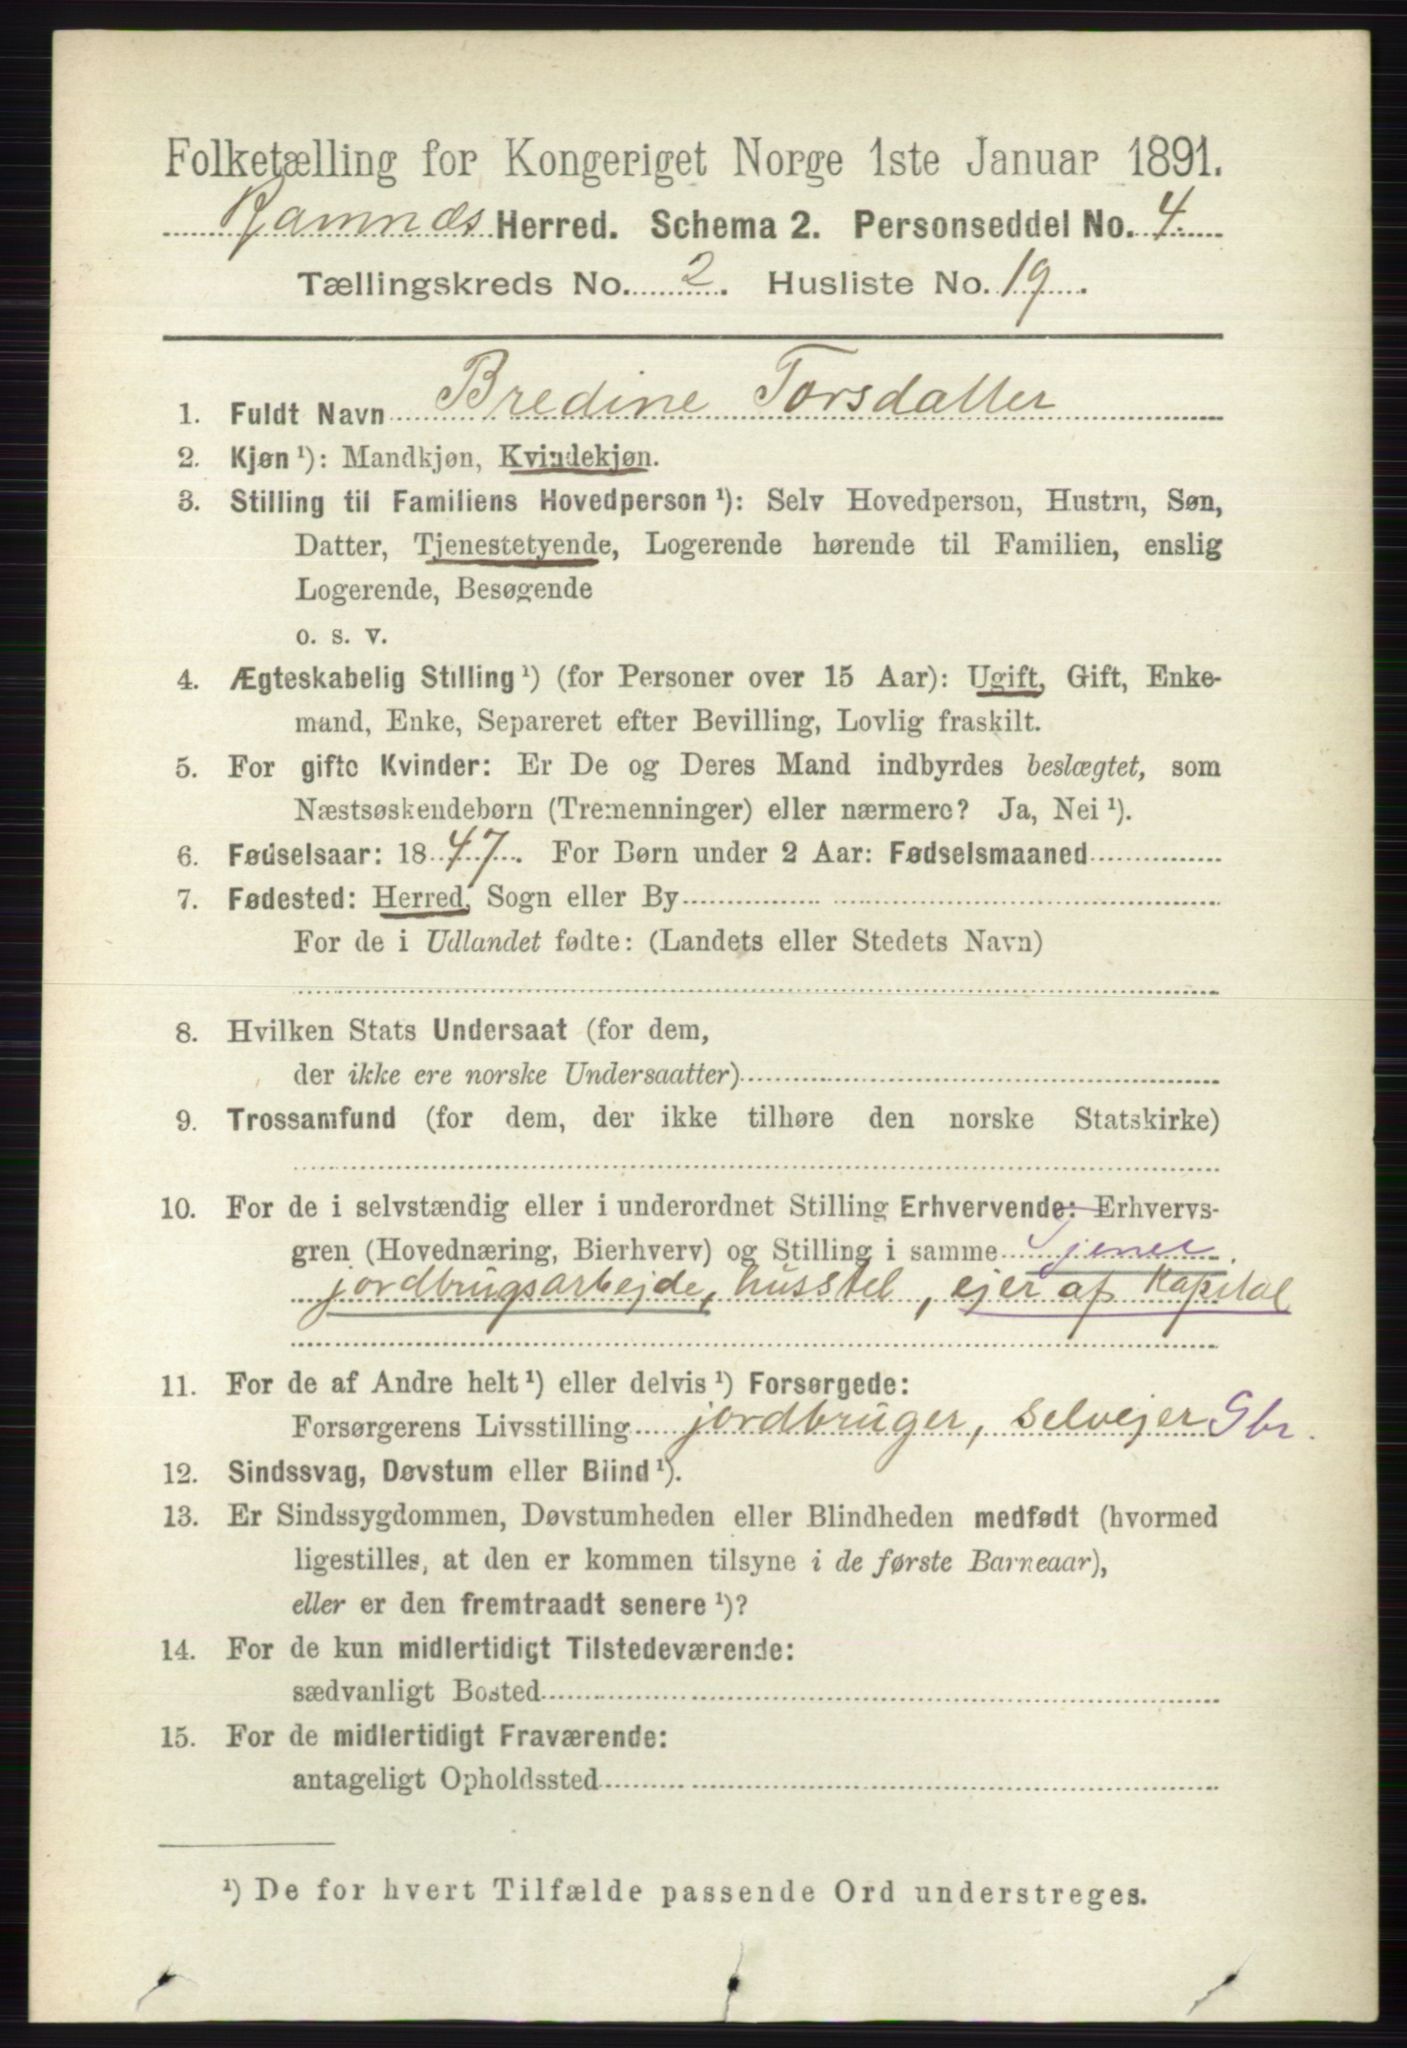 Folketælling for Kongeriget Norge 1ste Januar 1891.
Ramnæs Herred. Schema 2. Personseddel No. 4.
Tællingskreds No. 2. Husliste No. 19.
1. Fuldt Navn Bredine Torsdatter
2. Kjøn ¹): Mandkjøn, Kvindekjøn.
3. Stilling til Familiens Hovedperson ¹): Selv Hovedperson, Hustru, Søn,
Datter, Tjenestetyende, Logerende hørende til Familien, enslig
Logerende, Besøgende
o. s. v.
4. Ægteskabelig Stilling ¹) (for Personer over 15 Aar): Ugift, Gift, Enke-
mand, Enke, Separeret efter Bevilling, Lovlig fraskilt.
5. For gifte Kvinder: Er De og Deres Mand indbyrdes beslægtet, som
Næstsøskendebørn (Tremenninger) eller nærmere? Ja, Nei ¹).
6. Fødselsaar: 1847. For Børn under 2 Aar: Fødselsmaaned
7. Fødested: Herred, Sogn eller By
For de i Udlandet fødte: (Landets eller Stedets Navn)
8. Hvilken Stats Undersaat (for dem,
der ikke ere norske Undersaatter)
9. Trossamfund (for dem, der ikke tilhøre den norske Statskirke)
10. For de i selvstændig eller i underordnet Stilling Erhvervende: Erhvervs-
gren (Hovednæring, Bierhverv) og Stilling i samme Tjener
jordbrugsarbejde, husstel, ejer af Kapital
11. For de af Andre helt ¹) eller delvis ¹) Forsørgede:
Forsørgerens Livsstilling jordbruger, selvejer Gbr.
12. Sindssvag, Døvstum eller Blind ¹).
13. Er Sindssygdommen, Døvstumheden eller Blindheden medfødt (hvormed
ligestilles, at den er kommen tilsyne i de første Barneaar),
eller er den fremtraadt senere ¹)?
14. For de kun midlertidigt Tilstedeværende:
sædvanligt Bosted
15. For de midlertidigt Fraværende:
antageligt Opholdssted
¹) De for hvert Tilfælde passende Ord understreges.